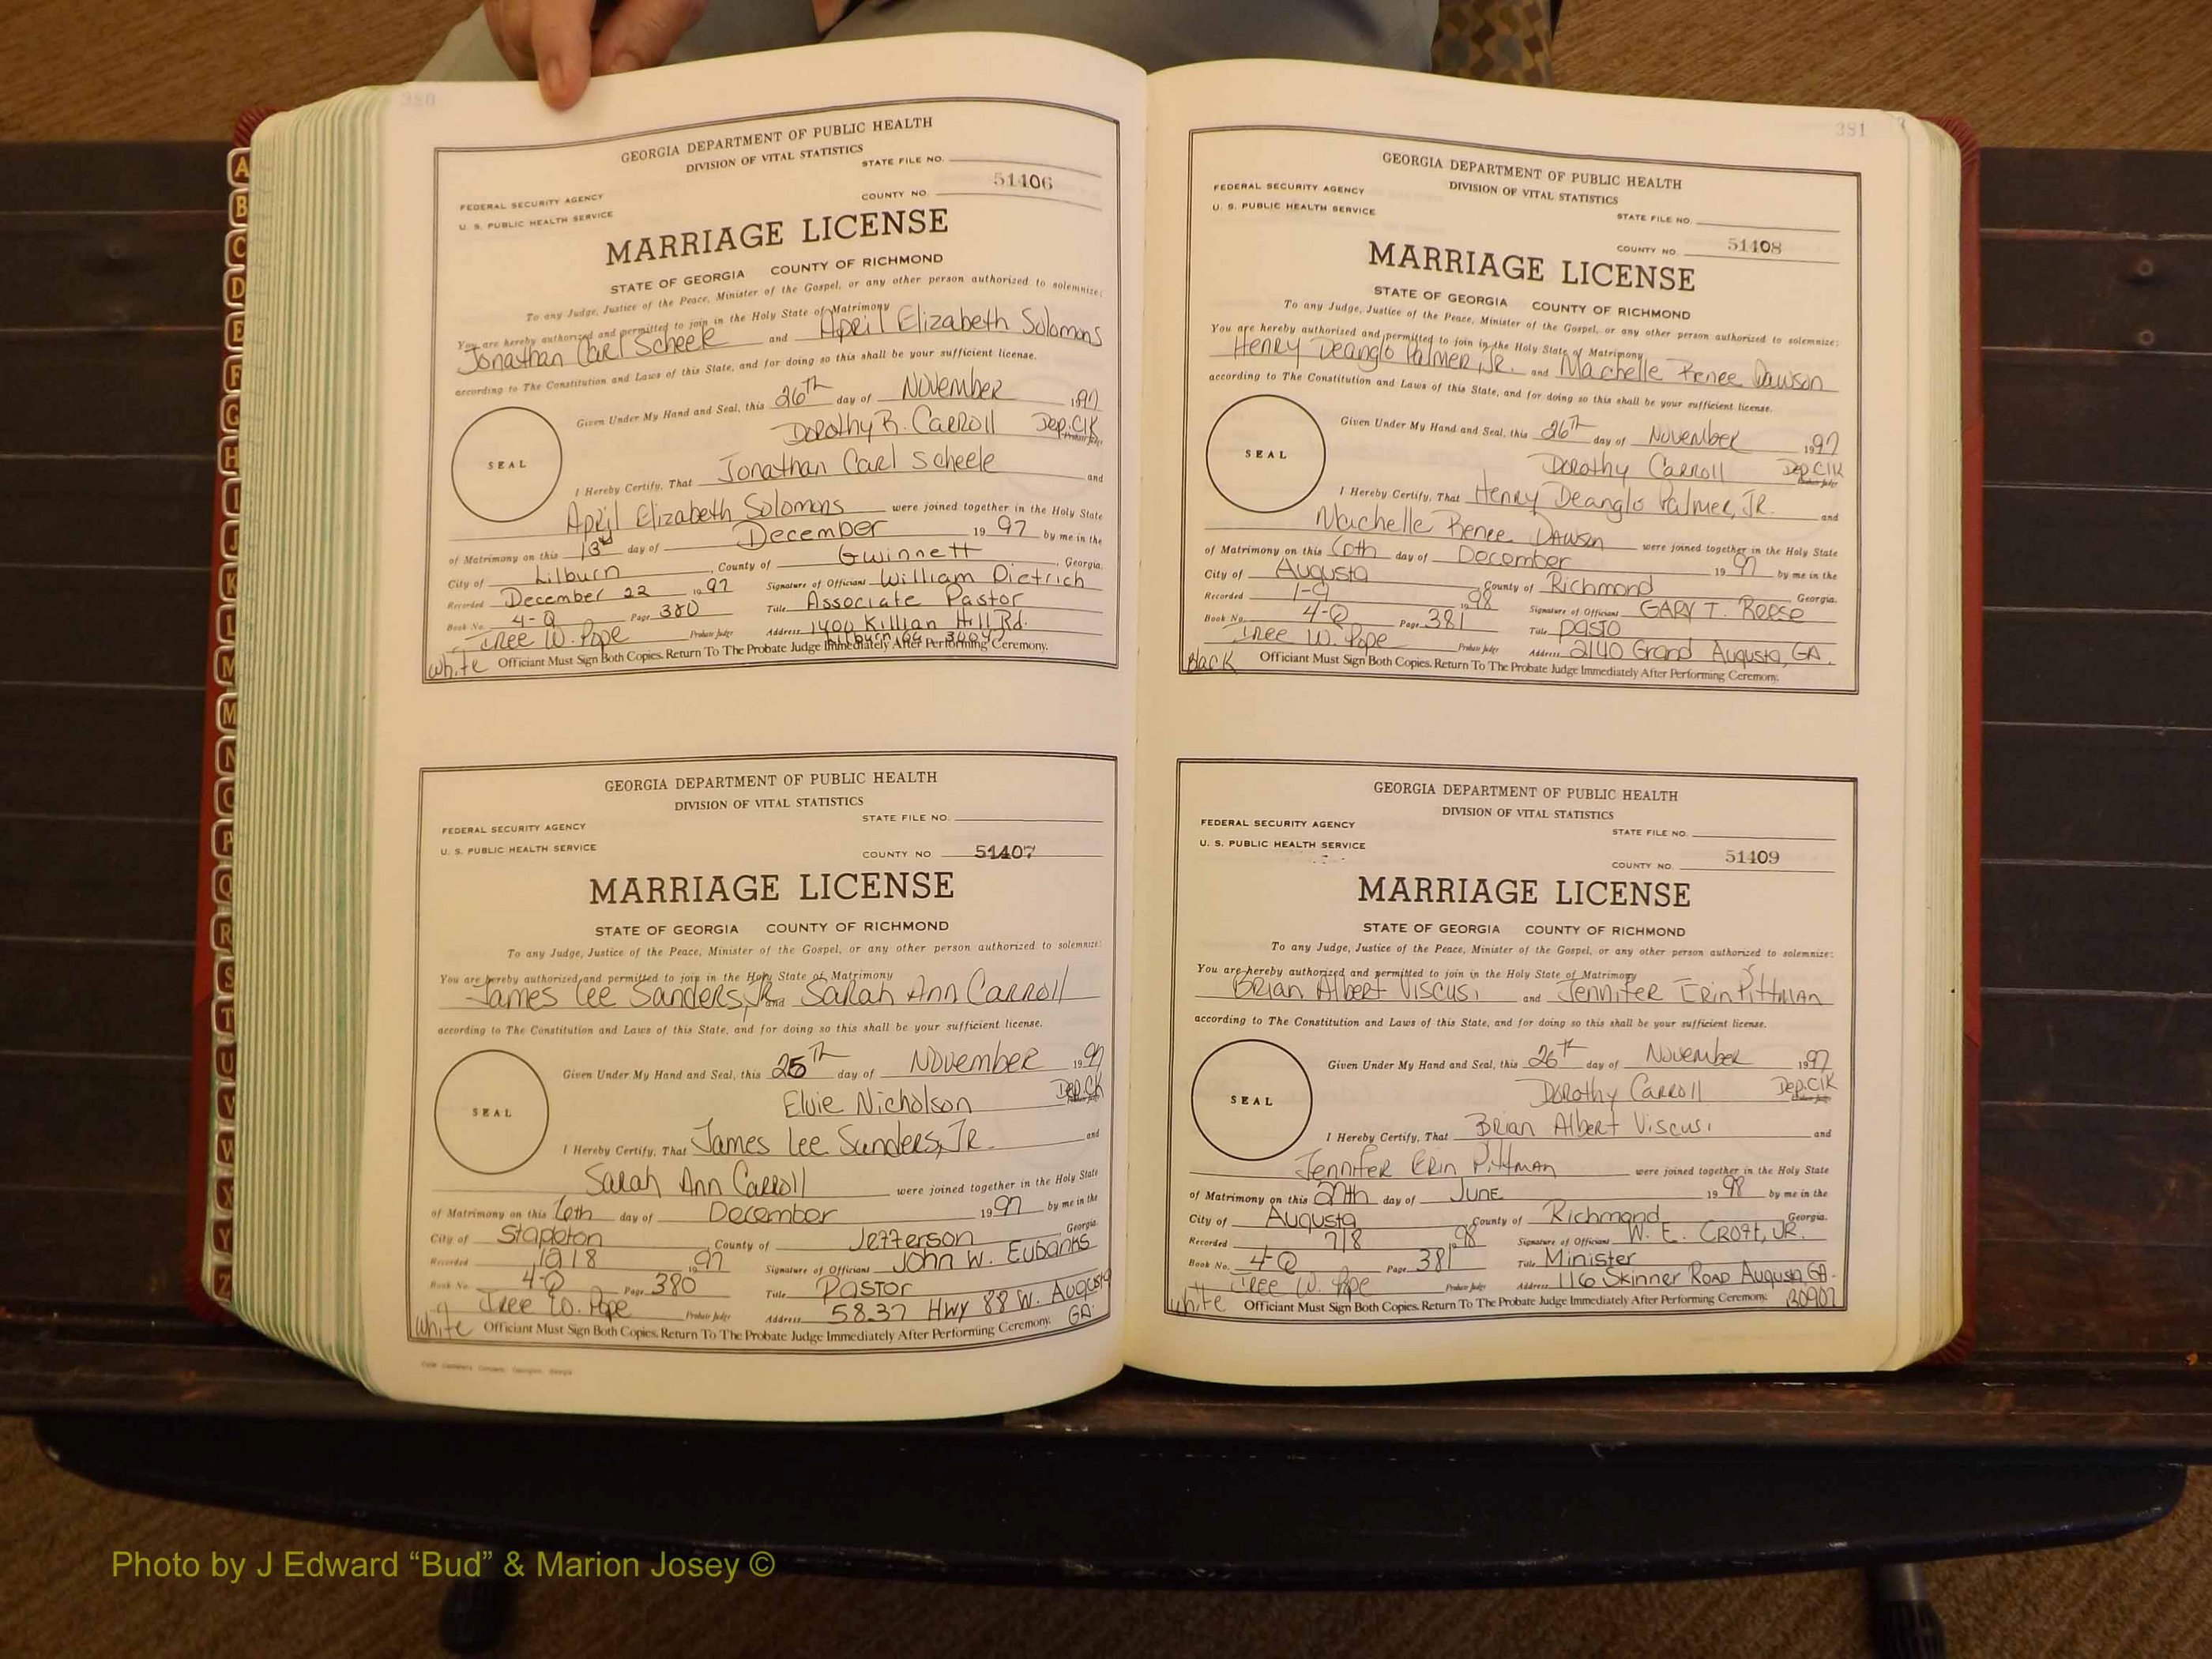 380
GEORGIA DEPARTMENT OF PUBLIC HEALTH
DIVISION OF VITAL STATISTICS
STATE FILE NO.
FEDERAL SECURITY AGENCY
U. S. PUBLIC HEALTH SERVICE
COUNTY NO. 51406
MARRIAGE LICENSE
STATE OF GEORGIA COUNTY OF RICHMOND
To any Judge, Justice of the Peace, Minister of the Gospel, or any other person authorized to solemnize:
You are hereby authorized and permitted to join in the Holy State of Matrimony
Jonathan Carl Scheele and April Elizabeth Solomons
according to The Constitution and Laws of this State, and for doing so this shall be your sufficient license.
Given Under My Hand and Seal, this 26th day of November 1997
Dorothy B. Carroll Dep. Clk Probate Judge
SEAL
I Hereby Certify, That Jonathan Carl Scheele and
April Elizabeth Solomons were joined together in the Holy State
of Matrimony on this 13 day of December 1997 by me in the
City of Lilburn, County of Gwinnett, Georgia.
Recorded December 22 1997 Signature of Officiant William Dietrich
Book No. 4-Q Page 380 Title Associate Pastor
Iree W. Pope Probate Judge Address 1400 Killian Hill Rd.
Lilburn, Ga 30047
White Officiant Must Sign Both Copies. Return To The Probate Judge Immediately After Performing Ceremony.
GEORGIA DEPARTMENT OF PUBLIC HEALTH
DIVISION OF VITAL STATISTICS
STATE FILE NO.
FEDERAL SECURITY AGENCY
U. S. PUBLIC HEALTH SERVICE
COUNTY NO 51407
MARRIAGE LICENSE
STATE OF GEORGIA COUNTY OF RICHMOND
To any Judge, Justice of the Peace, Minister of the Gospel, or any other person authorized to solemnize:
You are hereby authorized and permitted to join in the Holy State of Matrimony
James Lee Sanders, Jr. and Sarah Ann Carroll
according to The Constitution and Laws of this State, and for doing so this shall be your sufficient license.
Given Under My Hand and Seal, this 25th day of November 1997
Elvie Nicholson Dep. Ck Probate Judge
SEAL
I Hereby Certify, That James Lee Sanders, Jr. and
Sarah Ann Carroll were joined together in the Holy State
of Matrimony on this 6th day of December 1997 by me in the
City of Stapleton, County of Jefferson Georgia.
Recorded 12/18 1997 Signature of Officiant John W. Eubanks
Book No. 4-Q Page 380 Title Pastor
Iree W. Pope Probate Judge Address 5837 Hwy 88 W. Augusta
GA.
White Officiant Must Sign Both Copies. Return To The Probate Judge Immediately After Performing Ceremony.
381
GEORGIA DEPARTMENT OF PUBLIC HEALTH
DIVISION OF VITAL STATISTICS
FEDERAL SECURITY AGENCY
U. S. PUBLIC HEALTH SERVICE
STATE FILE NO.
COUNTY NO 51408
MARRIAGE LICENSE
STATE OF GEORGIA COUNTY OF RICHMOND
To any Judge, Justice of the Peace, Minister of the Gospel, or any other person authorized to solemnize:
You are hereby authorized and permitted to join in the Holy State of Matrimony
Henry Deanglo Palmer, Jr. and Machelle Renee Dawson
according to The Constitution and Laws of this State, and for doing so this shall be your sufficient license.
Given Under My Hand and Seal, this 26th day of November 1997
Dorothy Carroll Dep. Clk Probate Judge
SEAL
I Hereby Certify, That Henry Deanglo Palmer, Jr. and
Machelle Renee Dawson were joined together in the Holy State
of Matrimony on this 6th day of December 1997 by me in the
City of Augusta, County of Richmond Georgia.
Recorded 1-9 1998 Signature of Officiant GARY T. REESE
Book No. 4-Q Page 381 Title pasto
Iree W. Pope Probate Judge Address 2140 Grand Augusta, GA.
Black Officiant Must Sign Both Copies. Return To The Probate Judge Immediately After Performing Ceremony.
GEORGIA DEPARTMENT OF PUBLIC HEALTH
DIVISION OF VITAL STATISTICS
FEDERAL SECURITY AGENCY
STATE FILE NO.
U. S. PUBLIC HEALTH SERVICE
COUNTY NO. 51409
MARRIAGE LICENSE
STATE OF GEORGIA COUNTY OF RICHMOND
To any Judge, Justice of the Peace, Minister of the Gospel, or any other person authorized to solemnize:
You are hereby authorized and permitted to join in the Holy State of Matrimony
Brian Albert Viscusi and Jennifer Erin Pittman
according to The Constitution and Laws of this State, and for doing so this shall be your sufficient license.
Given Under My Hand and Seal, this 26th day of November 1997
Dorothy Carroll Dep. Clk Probate Judge
SEAL
I Hereby Certify, That Brian Albert Viscusi and
Jennifer Erin Pittman were joined together in the Holy State
of Matrimony on this 27th day of June 1998 by me in the
City of Augusta, County of Richmond Georgia.
Recorded 7/8 1998 Signature of Officiant W. E. Croft, Jr.
Book No. 4-Q Page 381 Title Minister
Iree W. Pope Probate Judge Address 116 Skinner Road Augusta, GA.
30907
White Officiant Must Sign Both Copies. Return To The Probate Judge Immediately After Performing Ceremony.
A
B
C
D
E
F
G
H
I
J
K
L
M
M
N
O
P
Q
R
S
T
U
V
W
X
Y
Z
Photo by J Edward “Bud” & Marion Josey ©